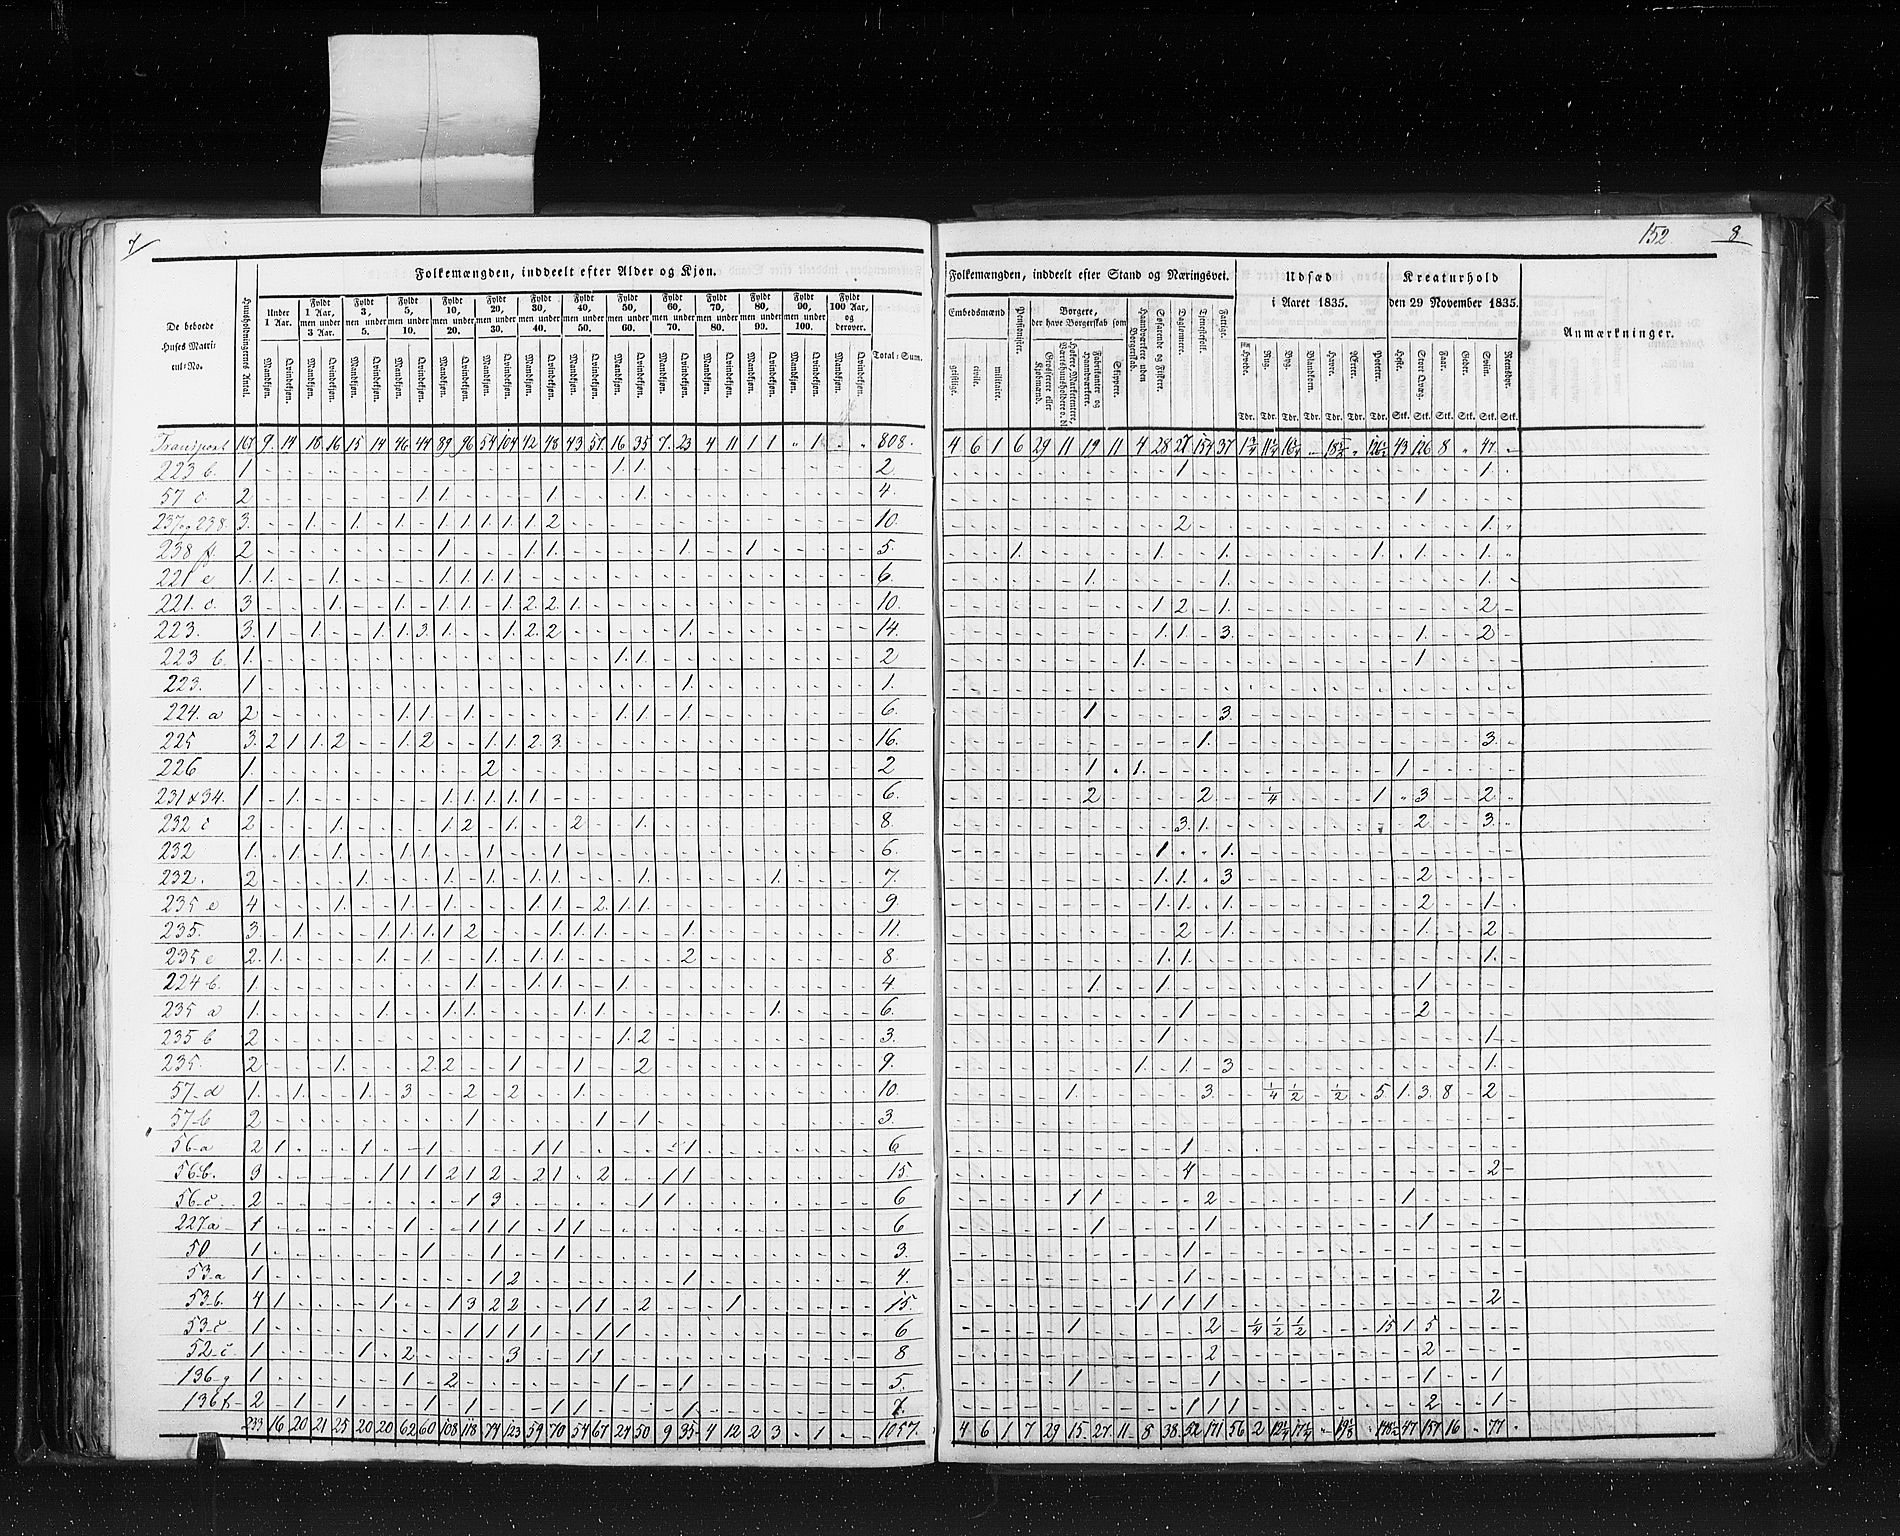 7
152 8
Folkemængden, inddeelt efter Alder og Kjøn.
De beboede Huses Matricul-No.
Huusholdningernes Antal.
Under 1 Aar.
Fyldt 1 Aar, men under 3 Aar.
Fyldt 3, men under 5.
Fyldt 5, men under 10.
Fyldt 10, men under 20.
Fyldt 20, men under 30.
Fyldt 30, men under 40.
Fyldt 40, men under 50.
Fyldt 50, men under 60.
Fyldt 60, men under 70.
Fyldt 70, men under 80.
Fyldt 80, men under 90.
Fyldt 90, men under 100.
Fyldt 100 Aar, og derover.
Mandkjøn. Qvindekjøn.
Total-Sum.
Folkemængden, inddeelt efter Stand og Næringsvei.
Embedsmænd
geistlige. civile. militaire.
Pensionister.
Borgere, der have Borgerskab som
Grosserere eller Kjøbmænd.
Fabrikanter og Haandværkere.
Skippere.
Haandværkere uden Borgerskab.
Søfarende og Fiskere.
Daglønnere.
Tjenestefolk.
Fattige.
Udsæd i Aaret 1835.
Hvede. Rug. Byg. Blandkorn. Havre. Erter. Poteter.
Tdr. Tdr. Tdr. Tdr. Tdr. Tdr. Tdr.
Kreaturhold den 29 November 1835.
Heste. Stort Qvæg. Faar. Geder. Sviin. Rensdyr.
Stk. Stk. Stk. Stk. Stk. Stk.
Anmærkninger.
Transport 167 9. 14 18 16 15 14 46 44 89 96 54 104 42 48 43 57 16 35 7. 23 4 11 1 1 " 1 808. 4 6 1 6 29 11 19 11 4 28 27 154 37 43 126 8 " 47
223 b. 1 1 1 2. 1 1.
57 c. 2 1 1. 1 1. 4. 1
237 og 238. 3. 1. 1. 1. 1. 1. 1. 1. 1. 2 10. 2 1.
238 f. 2 1 1 1. 1 1. 5. 1. 1. 1. 1 1. 1.
221 e 1. 1. 1. 1. 1. 1. 1 6. 1. 1. 1.
221. c. 3 1. 1. 1. 1. 1. 2. 2. 1. 10. 1. 2 1. 2
223. 3. 1 1. 1. 1. 3. 1. 1. 2. 2 1. 14. 1. 1. 3. 1. 2
223 b. 1. 1. 1. 2 1. 1.
223. 1 1. 1.
224. a 2 1. 1. 1. 1. 1. 1. 6. 1 3.
225 3. 2 1 1. 2 1. 2 1. 1. 2. 3. 16. 1. 3.
226 1. 2 2 1 1. 1
231 & 34. 1 1. 1. 1. 1. 1. 1 6. 2 2 1/4 1 3 2
232 c 2 1. 1. 2 1. 2 1. 8. 3. 1. 2 3.
232 1. 1. 1. 1. 1. 1. 1. 6. 1 1.
232. 2 1. 1. 1. 1. 1. 1. 1. 7. 1. 1. 3 2
235 e 4 1. 1. 1. 1. 1. 2. 1. 1. 9. 1. 1. 1. 2 1.
235. 3 1. 1. 1. 1. 1 2 1. 1. 1. 1. 11. 2 1. 1. 2.
235 e 2. 1. 1. 1. 1. 1. 1. 2 8. 1. 1. 1.
224 b. 1. 1. 1. 1. 1. 4. 1 1. 1
235 a 1. 1. 1. 1. 1. 1. 1. 6. 1 2
235 b 2 1. 2 3. 1 1
235. 2 1. 2. 2 1 1 2 9. 1 1. 3 1.
57-d 1. 1. 1. 3 2 2 1. 10. 1. 3. 1/4 1/2 1/2 5 1. 3. 8 2
57-b 2 1 1 1. 3.
56-a 2 1 1 1 1 1 1 6 1
56-b. 3 1 1 1 2 1 2 2 1 2 1 1 15. 4 2
56-c 2 1 3 1 1 6 1 1 2 1
227a 1 1 1 1 1 1 1 6 1 1 1
50 1 1 1 1 3. 1
53-a 1 1 2 1 4. 1
53-b. 4 1 1 1 3 2 2 1 1 2 1 15. 1 1 1 1 2
53-c 1 1 1 1 1 1 1 6 1 2 1/4 1/2 1/2 15 1 5
52-c 1 1 2 3 1 1 8 2 2
136-g 1 1 2 1 1 5. 1 1 1 1
136 f 2 1 1 1 1 1 1 1 7. 1 1 1 2 1
233 16 20 21 25 20 20 62 60 108 118 74 123 59 70 54 67 27 50 9 35 4 12 2 3 1 1057. 4 6 1 7 29 15. 27 11 8 38 52 171 56 2 47 157 16 77